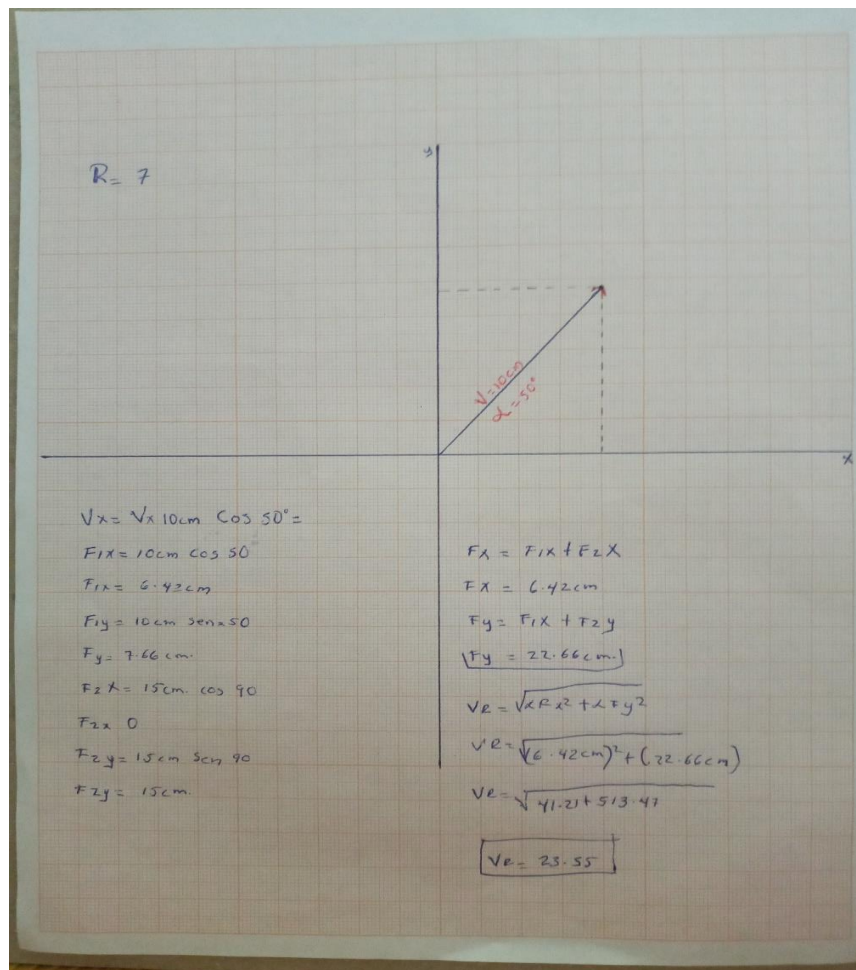 y
R= 7
V=10cm
α=50°
x
Vx= Vx 10cm Cos 50°=
F1x= 10cm cos 50
F1x= 6.42cm
F1y= 10cm senx50
Fy= 7.66 cm.
F2x= 15cm. cos 90
F2x 0
F2y= 15cm Sen 90
F2y= 15cm.
Fx = F1x + F2x
Fx = 6.42cm
Fy= F1x + F2y
Fy = 22.66cm.
VR= √ΣFx²+ΣFy²
VR= √(6.42cm)²+(22.66cm)
VR= √41.21+513.47
VR= 23.55